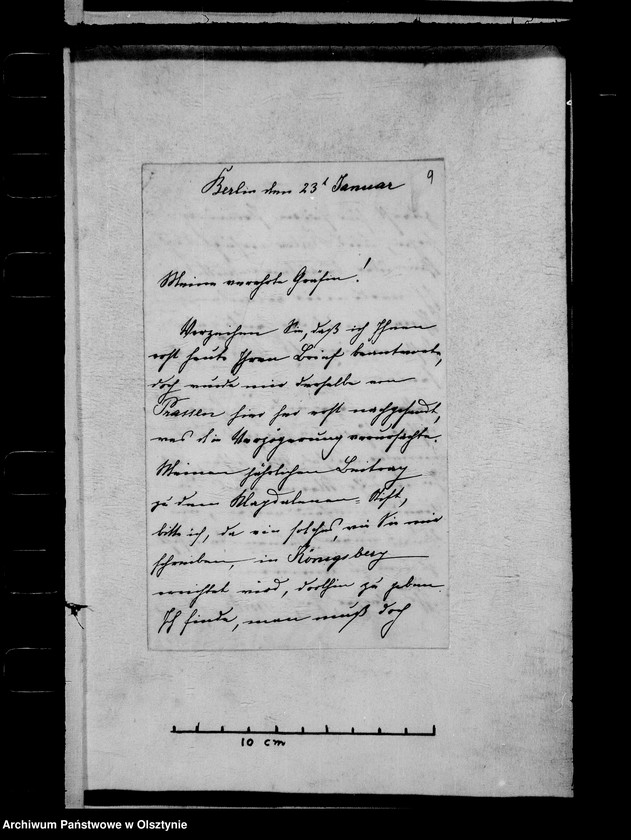 9
Berlin den 23t Januar
Meine verehrte Gräfin!
Verzeihen Sie, daß ich Ihnen
erst heute Ihren Brief beantworte,
doch wurde mir derselbe von
Prassen hier her erst nachgesandt,
was die Verzögerung verursachte.
Meinen jährlichen Beitrag
zu dem Magdalenen-Stift,
bitte ich, da ein solches, wie Sie mir
schreiben, in Königsberg
errichtet wird, dorthin zu geben.
Ich finde, man muß doch
10 cm
Archiwum Państwowe w Olsztynie